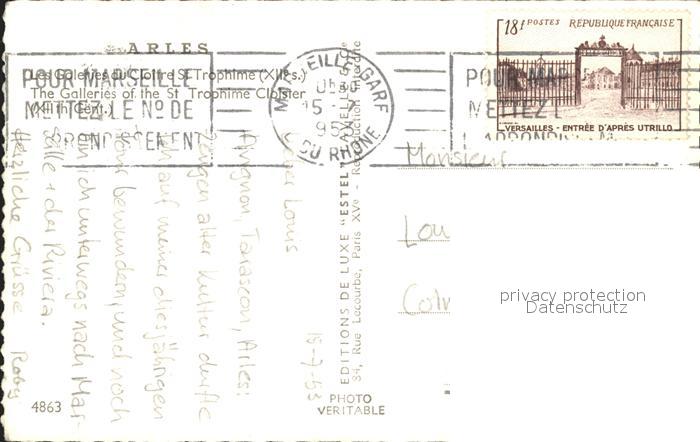 ARLES
Les Galeries du Cloître St Trophime (XIIe s.)
The Galleries of the St Trophime Cloister
(XIIth Cent.)
POUR MARSEILLE
METTEZ LE No DE
L'ARRONDISSEMENT
MARSEILLE GARE
15-7
1953
BOU DU RHONE
POUR MAR
METTEZ L
L'ARRONDI
18f POSTES REPUBLIQUE FRANÇAISE
VERSAILLES - ENTRÉE D'APRÈS UTRILLO
15-7-53
Louis
Avignon, Tarascon, Arles:
Zeugen alter Kultur durfte
ich auf meiner diesjährigen
Tour bewundern, und noch
bin ich unterwegs nach Mar-
seille + der Riviera.
Herzliche Grüsse Roby
EDITIONS DE LUXE "ESTEL"
34, Rue Lecourbe, Paris XVe - Reproduction Interdite
PHOTO
VERITABLE
4863
Monsieur
Lou
Colm
privacy protection
Datenschutz